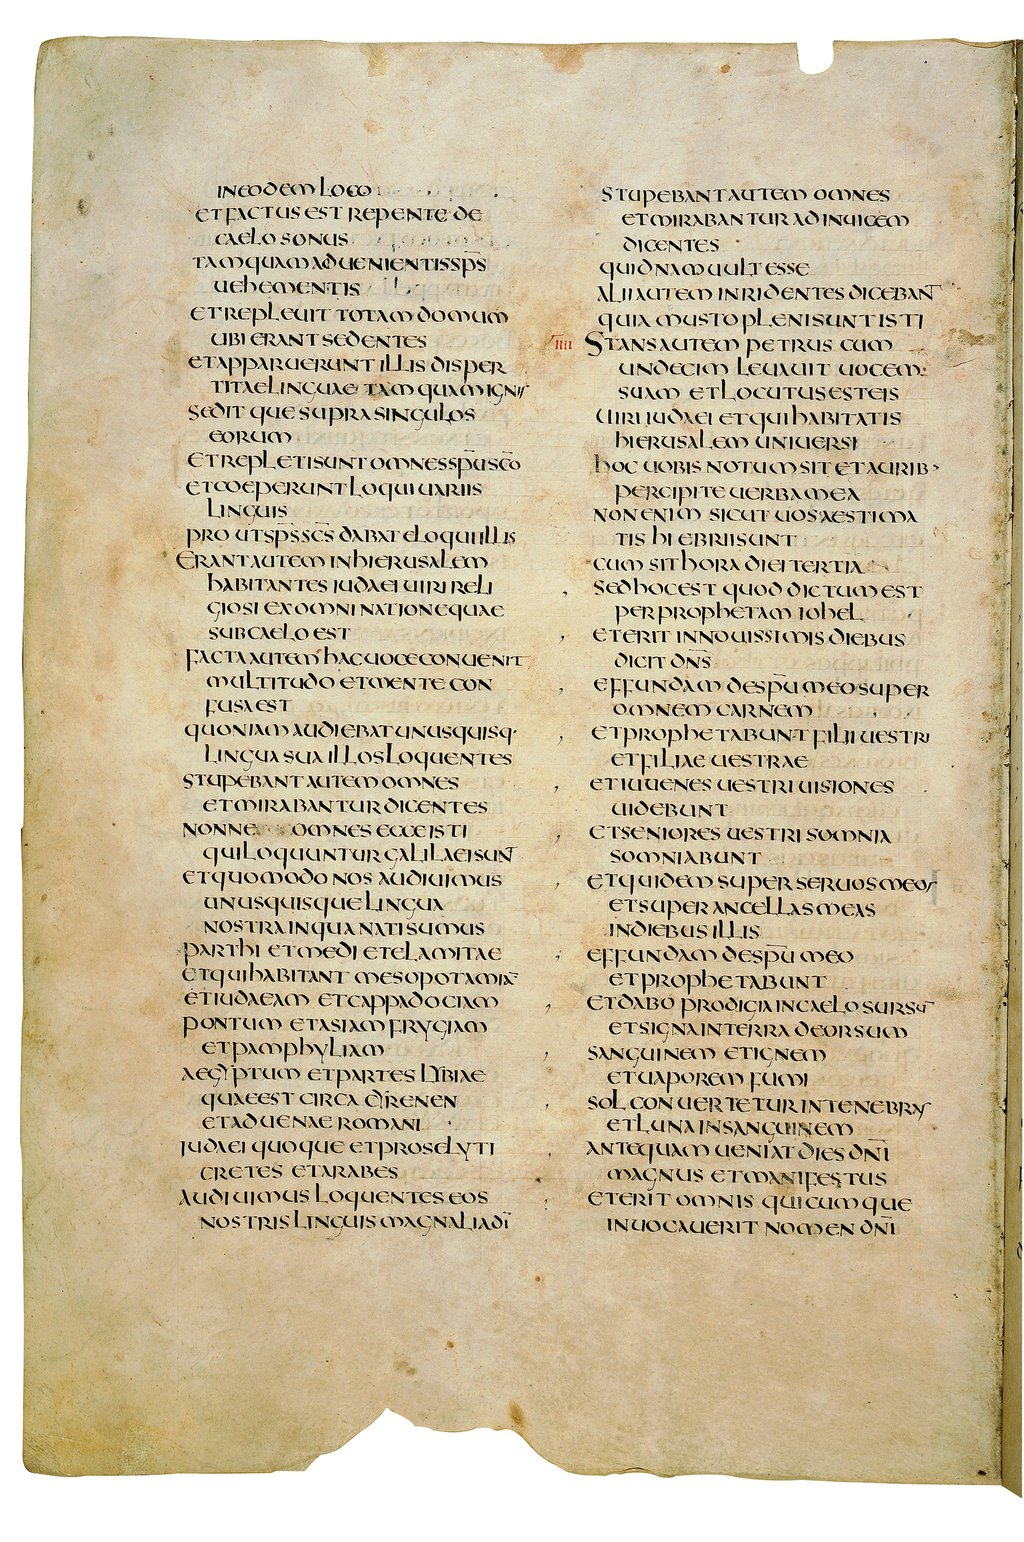 IN EODEM LOCO
ET FACTUS EST REPENTE DE
CAELO SONUS
TAMQUAM ADUENIENTIS SP̄S
UEHEMENTIS
ET REPLEUIT TOTAM DOMUM
UBI ERANT SEDENTES
ET APPARUERUNT ILLIS DISPER
TITAE LINGUAE TAMQUAM IGNIS
SEDITQUE SUPRA SINGULOS
EORUM
ET REPLETI SUNT OMNES SPŪ SCŌ
ET COEPERUNT LOQUI UARIIS
LINGUIS
PROUT SP̄S SC̄S DABAT ELOQUI ILLIS
ERANT AUTEM IN HIERUSALEM
HABITANTES IUDAEI UIRI RELI
GIOSI EX OMNI NATIONE QUAE
SUB CAELO EST
FACTA AUTEM HAC UOCE CONUENIT
MULTITUDO ET MENTE CON
FUSA EST
QUONIAM AUDIEBAT UNUSQUISQ·
LINGUA SUA ILLOS LOQUENTES
STUPEBANT AUTEM OMNES
ET MIRABANTUR DICENTES
NONNE OMNES ECCE ISTI
QUI LOQUUNTUR GALILAEI SUNT
ET QUOMODO NOS AUDIUIMUS
UNUSQUISQUE LINGUA
NOSTRA IN QUA NATI SUMUS
PARTHI ET MEDI ET ELAMITAE
ET QUI HABITANT MESOPOTAMIĀ
ET IUDAEAM ET CAPPADOCIAM
PONTUM ET ASIAM FRYGIAM
ET PAMPHYLIAM
AEGYPTUM ET PARTES LYBIAE
QUAE EST CIRCA CYRENEN
ET ADUENAE ROMANI
IUDAEI QUOQUE ET PROSELYTI
CRETES ET ARABES
AUDIUIMUS LOQUENTES EOS
NOSTRIS LINGUIS MAGNALIA DĪ
STUPEBANT AUTEM OMNES
ET MIRABANTUR AD INUICEM
DICENTES
QUIDNAM UULT ESSE
ALII AUTEM INRIDENTES DICEBANT
QUIA MUSTO PLENI SUNT ISTI
IIII STANS AUTEM PETRUS CUM
UNDECIM LEUAUIT UOCEM
SUAM ET LOCUTUS EST EIS
UIRI IUDAEI ET QUI HABITATIS
HIERUSALEM UNIUERSI
HOC UOBIS NOTUM SIT ET AURIB·
PERCIPITE UERBA MEA
NON ENIM SICUT UOS AESTIMA
TIS HI EBRII SUNT
CUM SIT HORA DIEI TERTIA
SED HOC EST QUOD DICTUM EST
PER PROPHETAM IOHEL
ET ERIT IN NOUISSIMIS DIEBUS
DICIT DN̄S
EFFUNDAM DE SPŪ MEO SUPER
OMNEM CARNEM
ET PROPHETABUNT FILII UESTRI
ET FILIAE UESTRAE
ET IUUENES UESTRI UISIONES
UIDEBUNT
ET SENIORES UESTRI SOMNIA
SOMNIABUNT
ET QUIDEM SUPER SERUOS MEOS
ET SUPER ANCELLAS MEAS
IN DIEBUS ILLIS
EFFUNDAM DE SPŪ MEO
ET PROPHETABUNT
ET DABO PRODIGIA IN CAELO SURSŪ
ET SIGNA IN TERRA DEORSUM
SANGUINEM ET IGNEM
ET UAPOREM FUMI
SOL CONUERTETUR IN TENEBRAS
ET LUNA IN SANGUINEM
ANTEQUAM UENIAT DIES DN̄I
MAGNUS ET MANIFESTUS
ET ERIT OMNIS QUICUMQUE
INUOCAUERIT NOMEN DN̄I